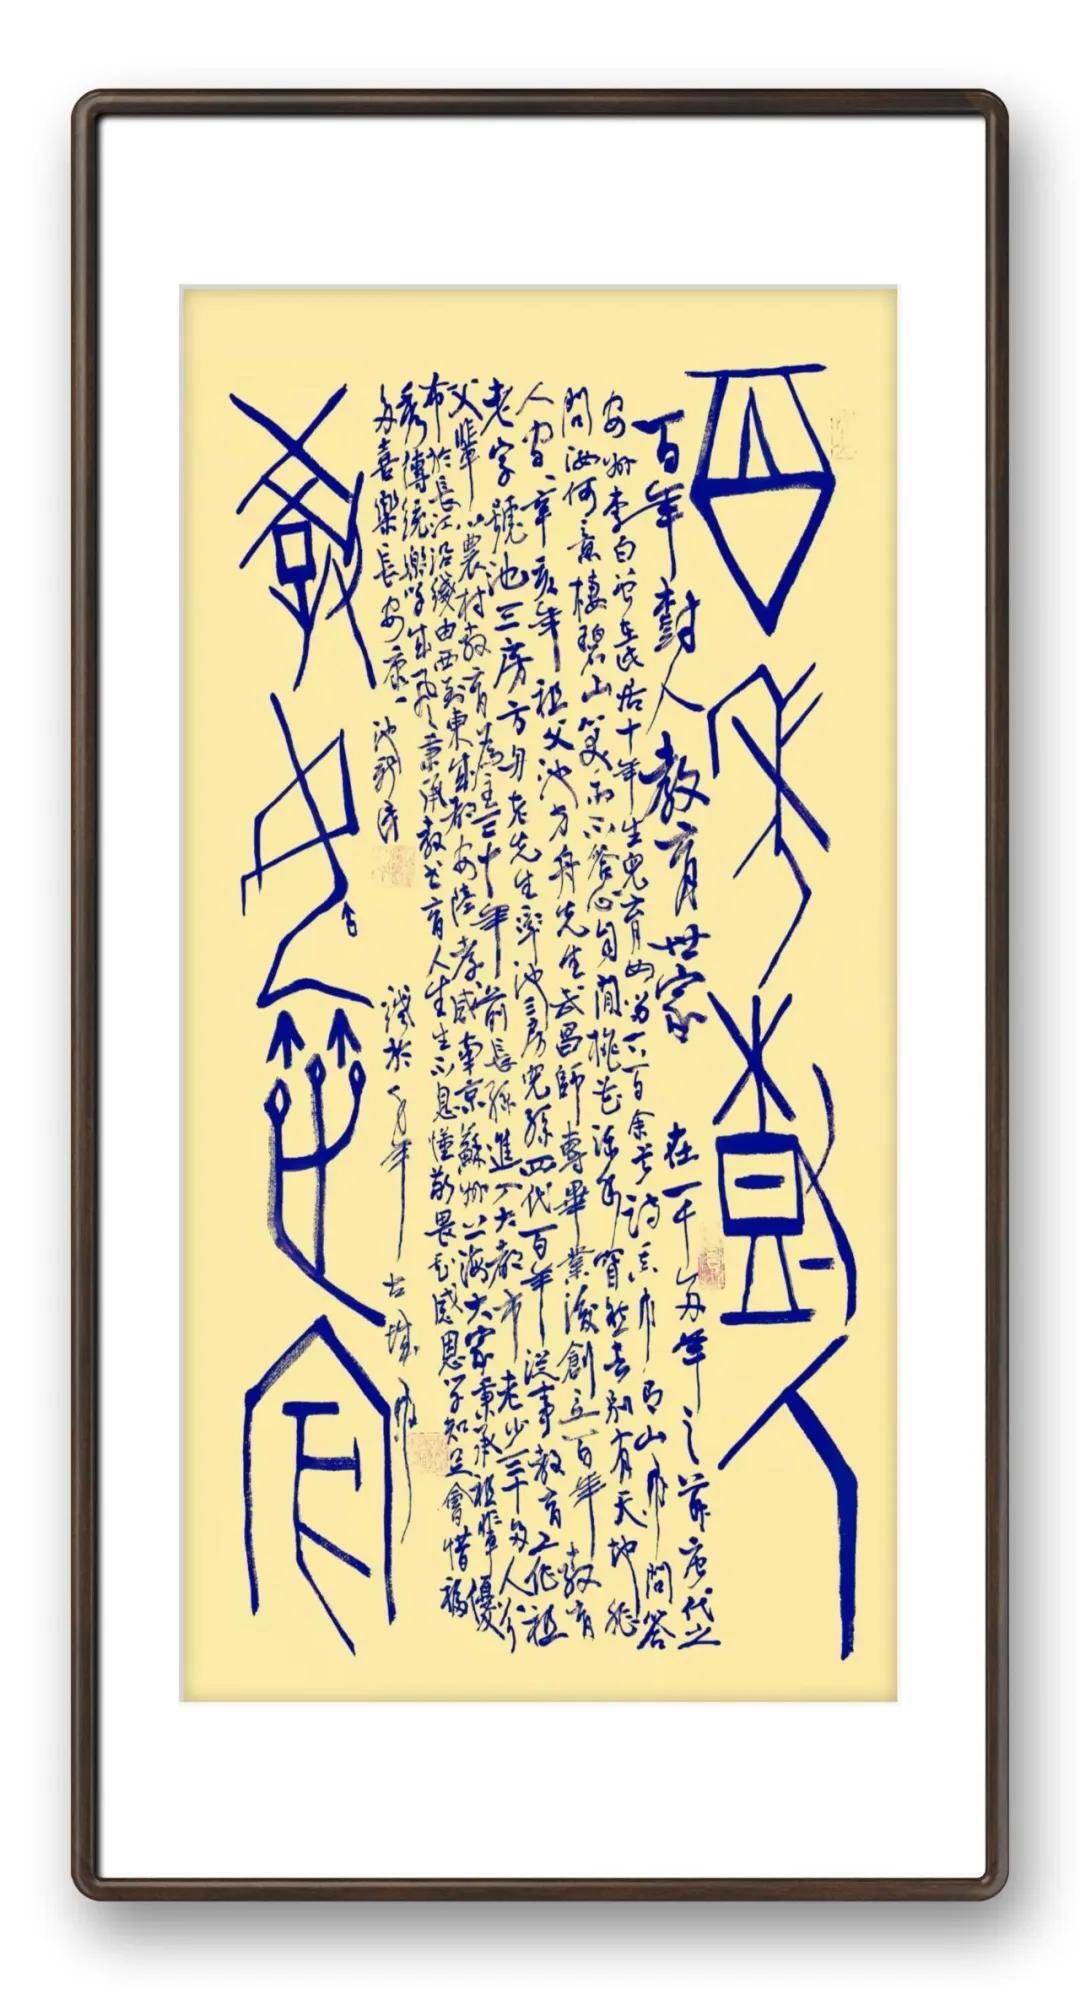 百年樹人
教育世家
百年樹人 教育世家 在一千多年之前唐代之
安州李白曾在此居十年生兒育女留下百余首詩 山中問答
問汝何意棲碧山笑而不答心自閒桃花流水窅然去別有天地非
人間 辛亥年祖父池方舟先生武昌師專畢業後創立百年教育
老字號池三房方舟老先生率池三房兒孫四代百年從事教育工作祖
父輩以農村教育為主三十年前長孫進入大都市老少三十多人分
布於長江沿綫由西到東成都安陸孝感南京蘇州上海大家秉承祖輩優
秀傳統樂學成風秉承教書育人生生不息懂敬畏感恩學知足會惜福
多喜樂長安康 池新
於 年 古城